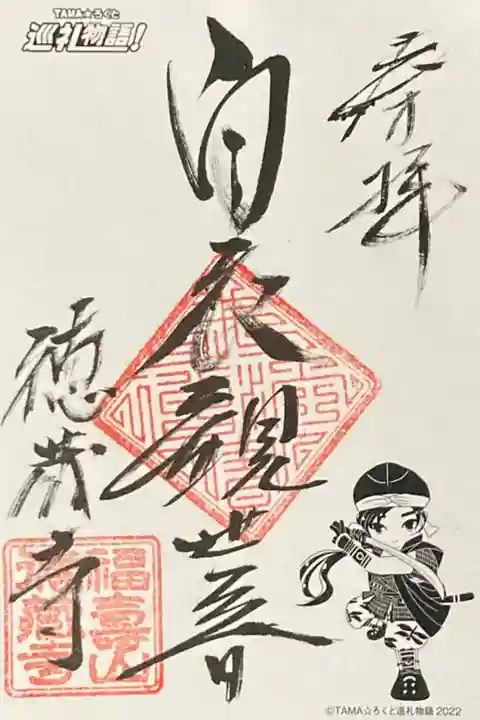 TAMA☆ろくと
巡礼物語!
奉拝
白衣観世音
徳蔵寺
©TAMA☆ろくと巡礼物語 2022